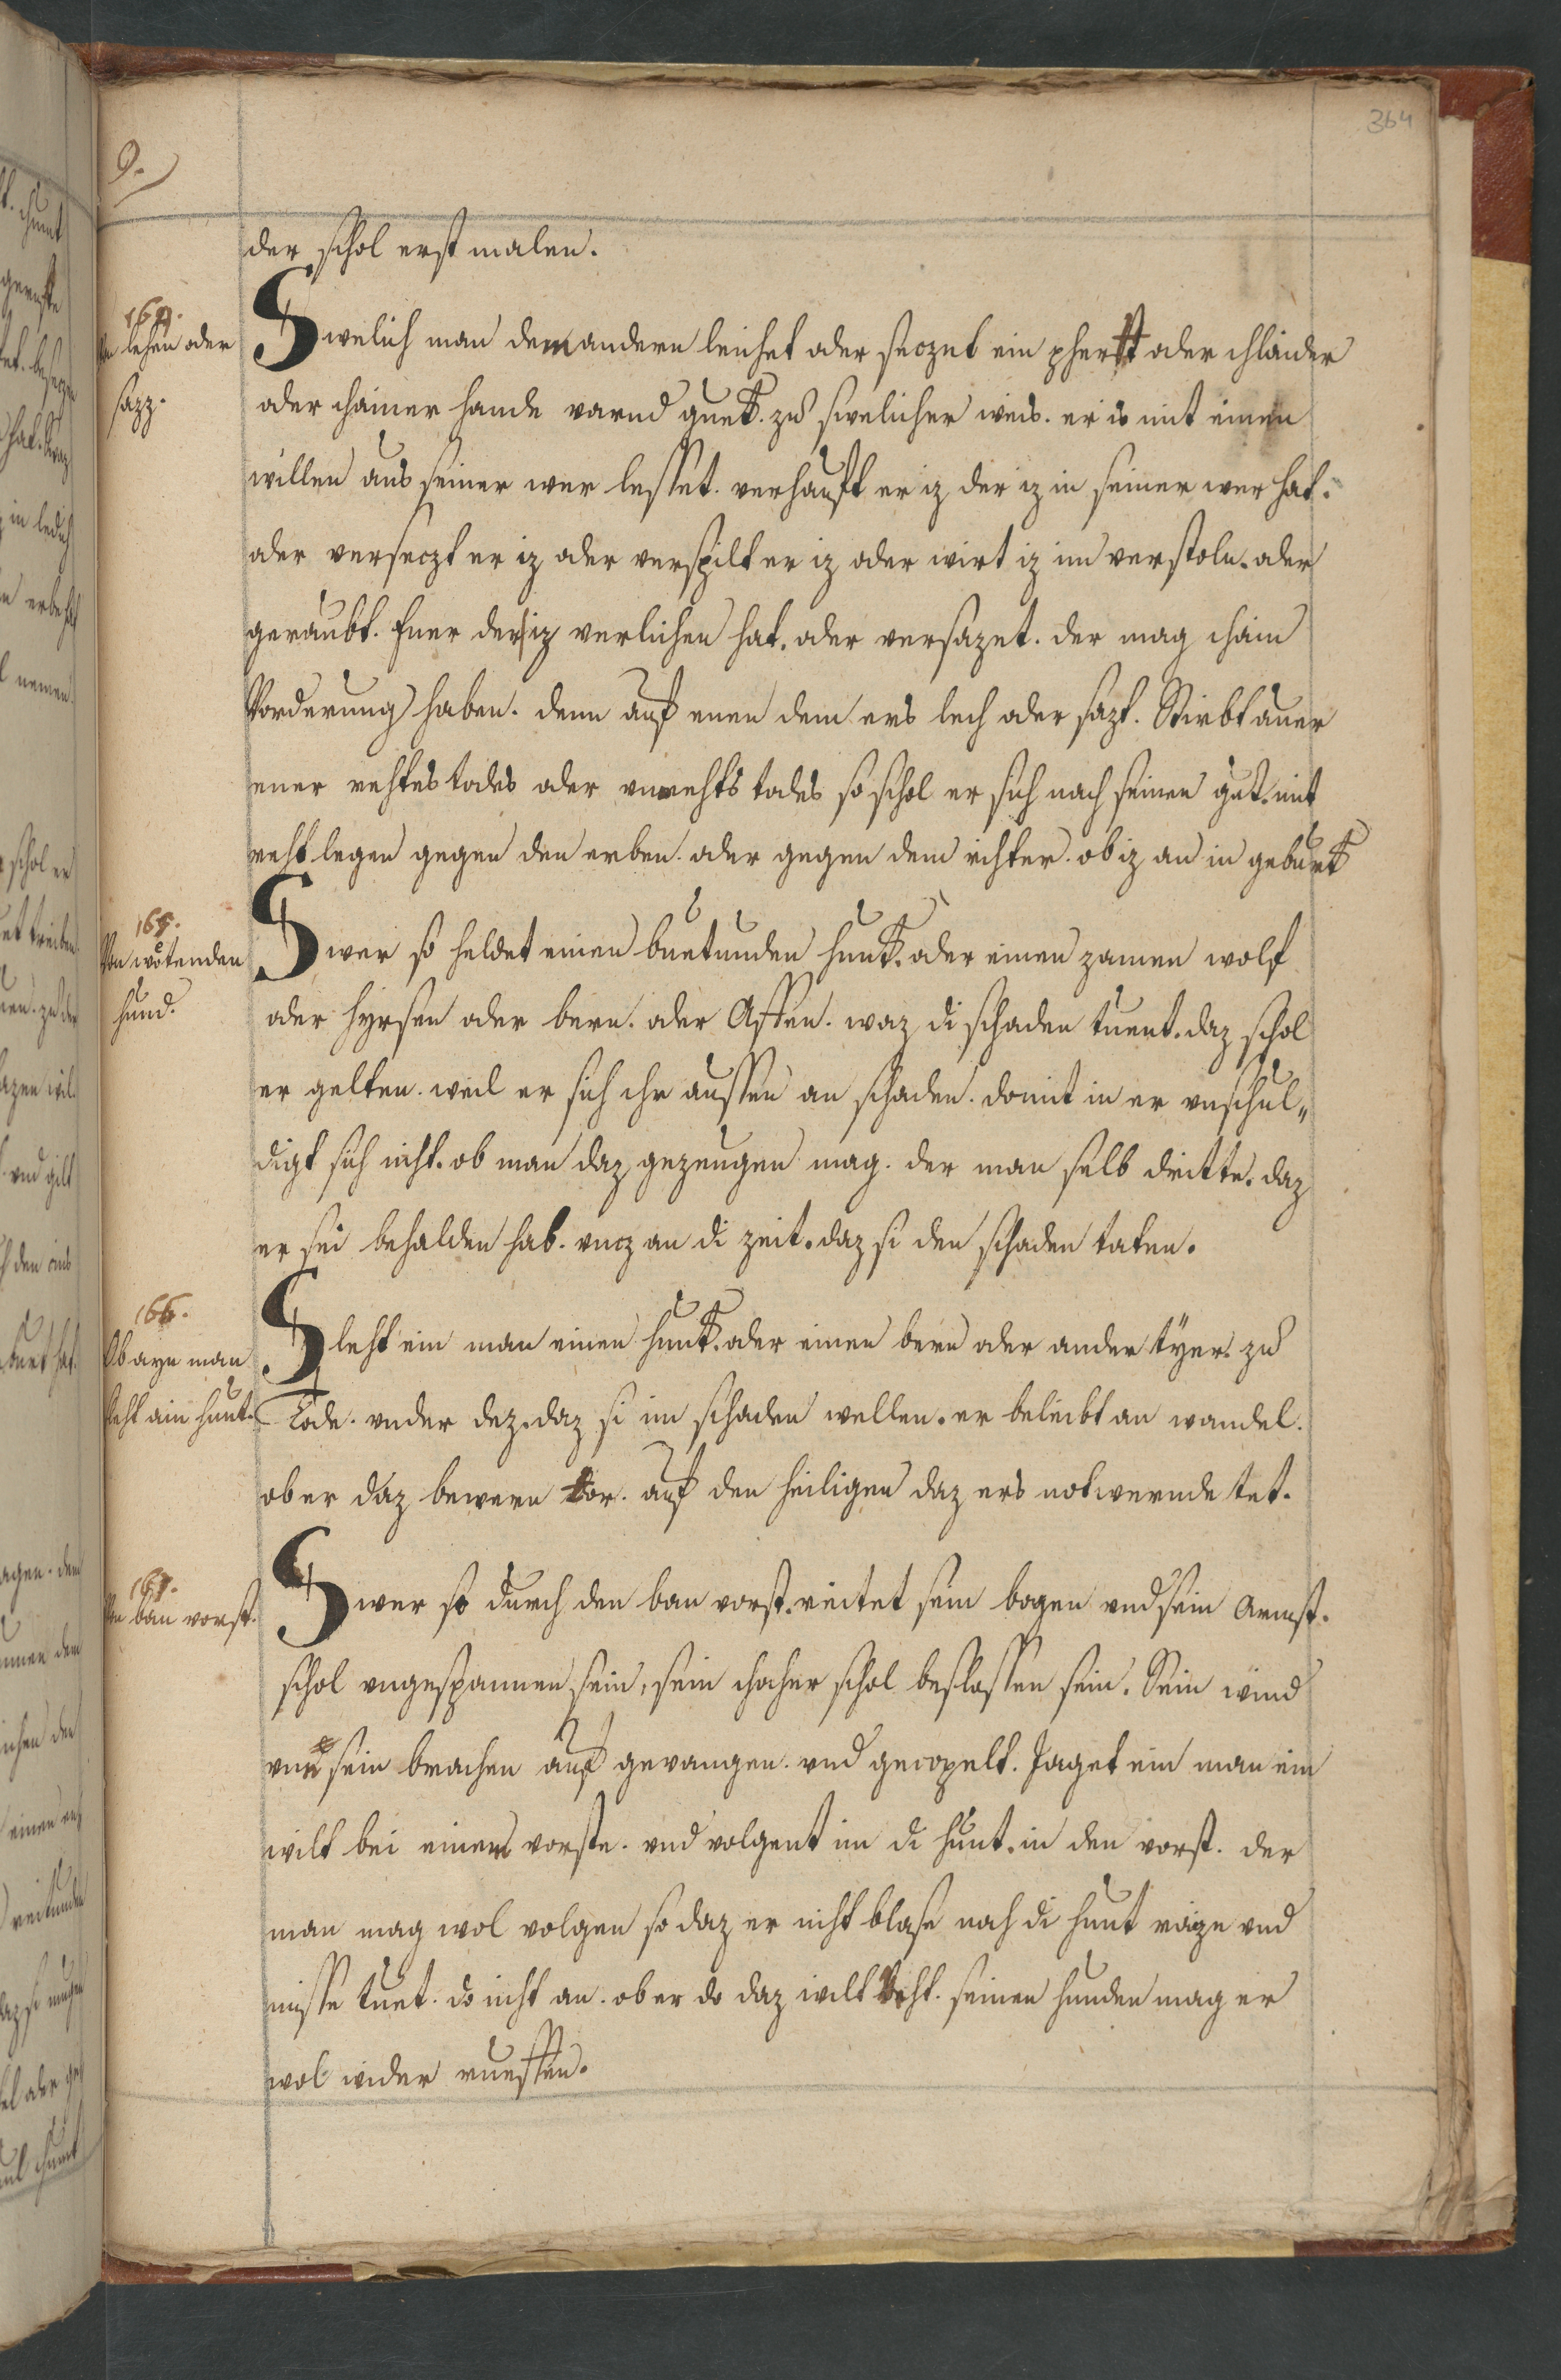 364
9.
der schol erst malen.
164.
Von lehen oder
sazz.
Swelich man dem andern leichet oder seczet ein phertt oder chlaider
oder chainer hande varnd guet. zu swelicher weis. er is mit einen
willen aus seiner wer lesset. verchauft er iz der iz in seiner wer hat.
oder verseczt er iz oder verspilt er iz oder wirt iz im verstoln. oder
geraubt. Ener der iz verlichen hat. oder versazet. der mag chain
Vorderung haben. denn auf enen dem ers lech oder sazt. Stirbt auer
ener rehtes todes oder vnrehts todes so schol er sich nach seinen gut. mit
reht legen gegen den erben. oder gegen dem richter. ob iz an in geburt
165.
Von wötenden
hund.
Swer so heldet einen buetunden hunt. oder einen zamen wolf
oder hyrsen oder bern. oder Affen. waz di schaden tuent. daz schol
er gelten. weil er sich ihr aussen an schaden. domit in er vnschul„
digt sich niht. ob man daz gezeugen mag. der man selb dritte. daz
er sei behalden hab. vncz an di zeit. daz si den schaden taten.
166.
Ob ayn man
sleht ain hunt.
Sleht ein man einen hunt. oder einen bern oder ander tyer. zu
Tode. vnder dez. daz si im schaden wellen. er beleibt an wandel.
ob er daz bewern tor. auf den heiligen daz ers notwernde tet.
167.
Von ban vorst.
Swer so durch den ban vorst. reitet sein bogen vnd sein Armst.
schol vngespannen sein, sein chocher schol beslossen sein. Sein wind
vnd sein brachen auf gevangen. vnd gecopelt. Jaget ein man ein
wilt bei einem vorste. vnd volgent im di hunt. in den vorst. der
man mag wol volgen so daz er niht blase noch di hunt raize vnd
misse tuet. do niht an. ob er do daz wilt veht. seinen hunden mag er
wol wider rueffen.